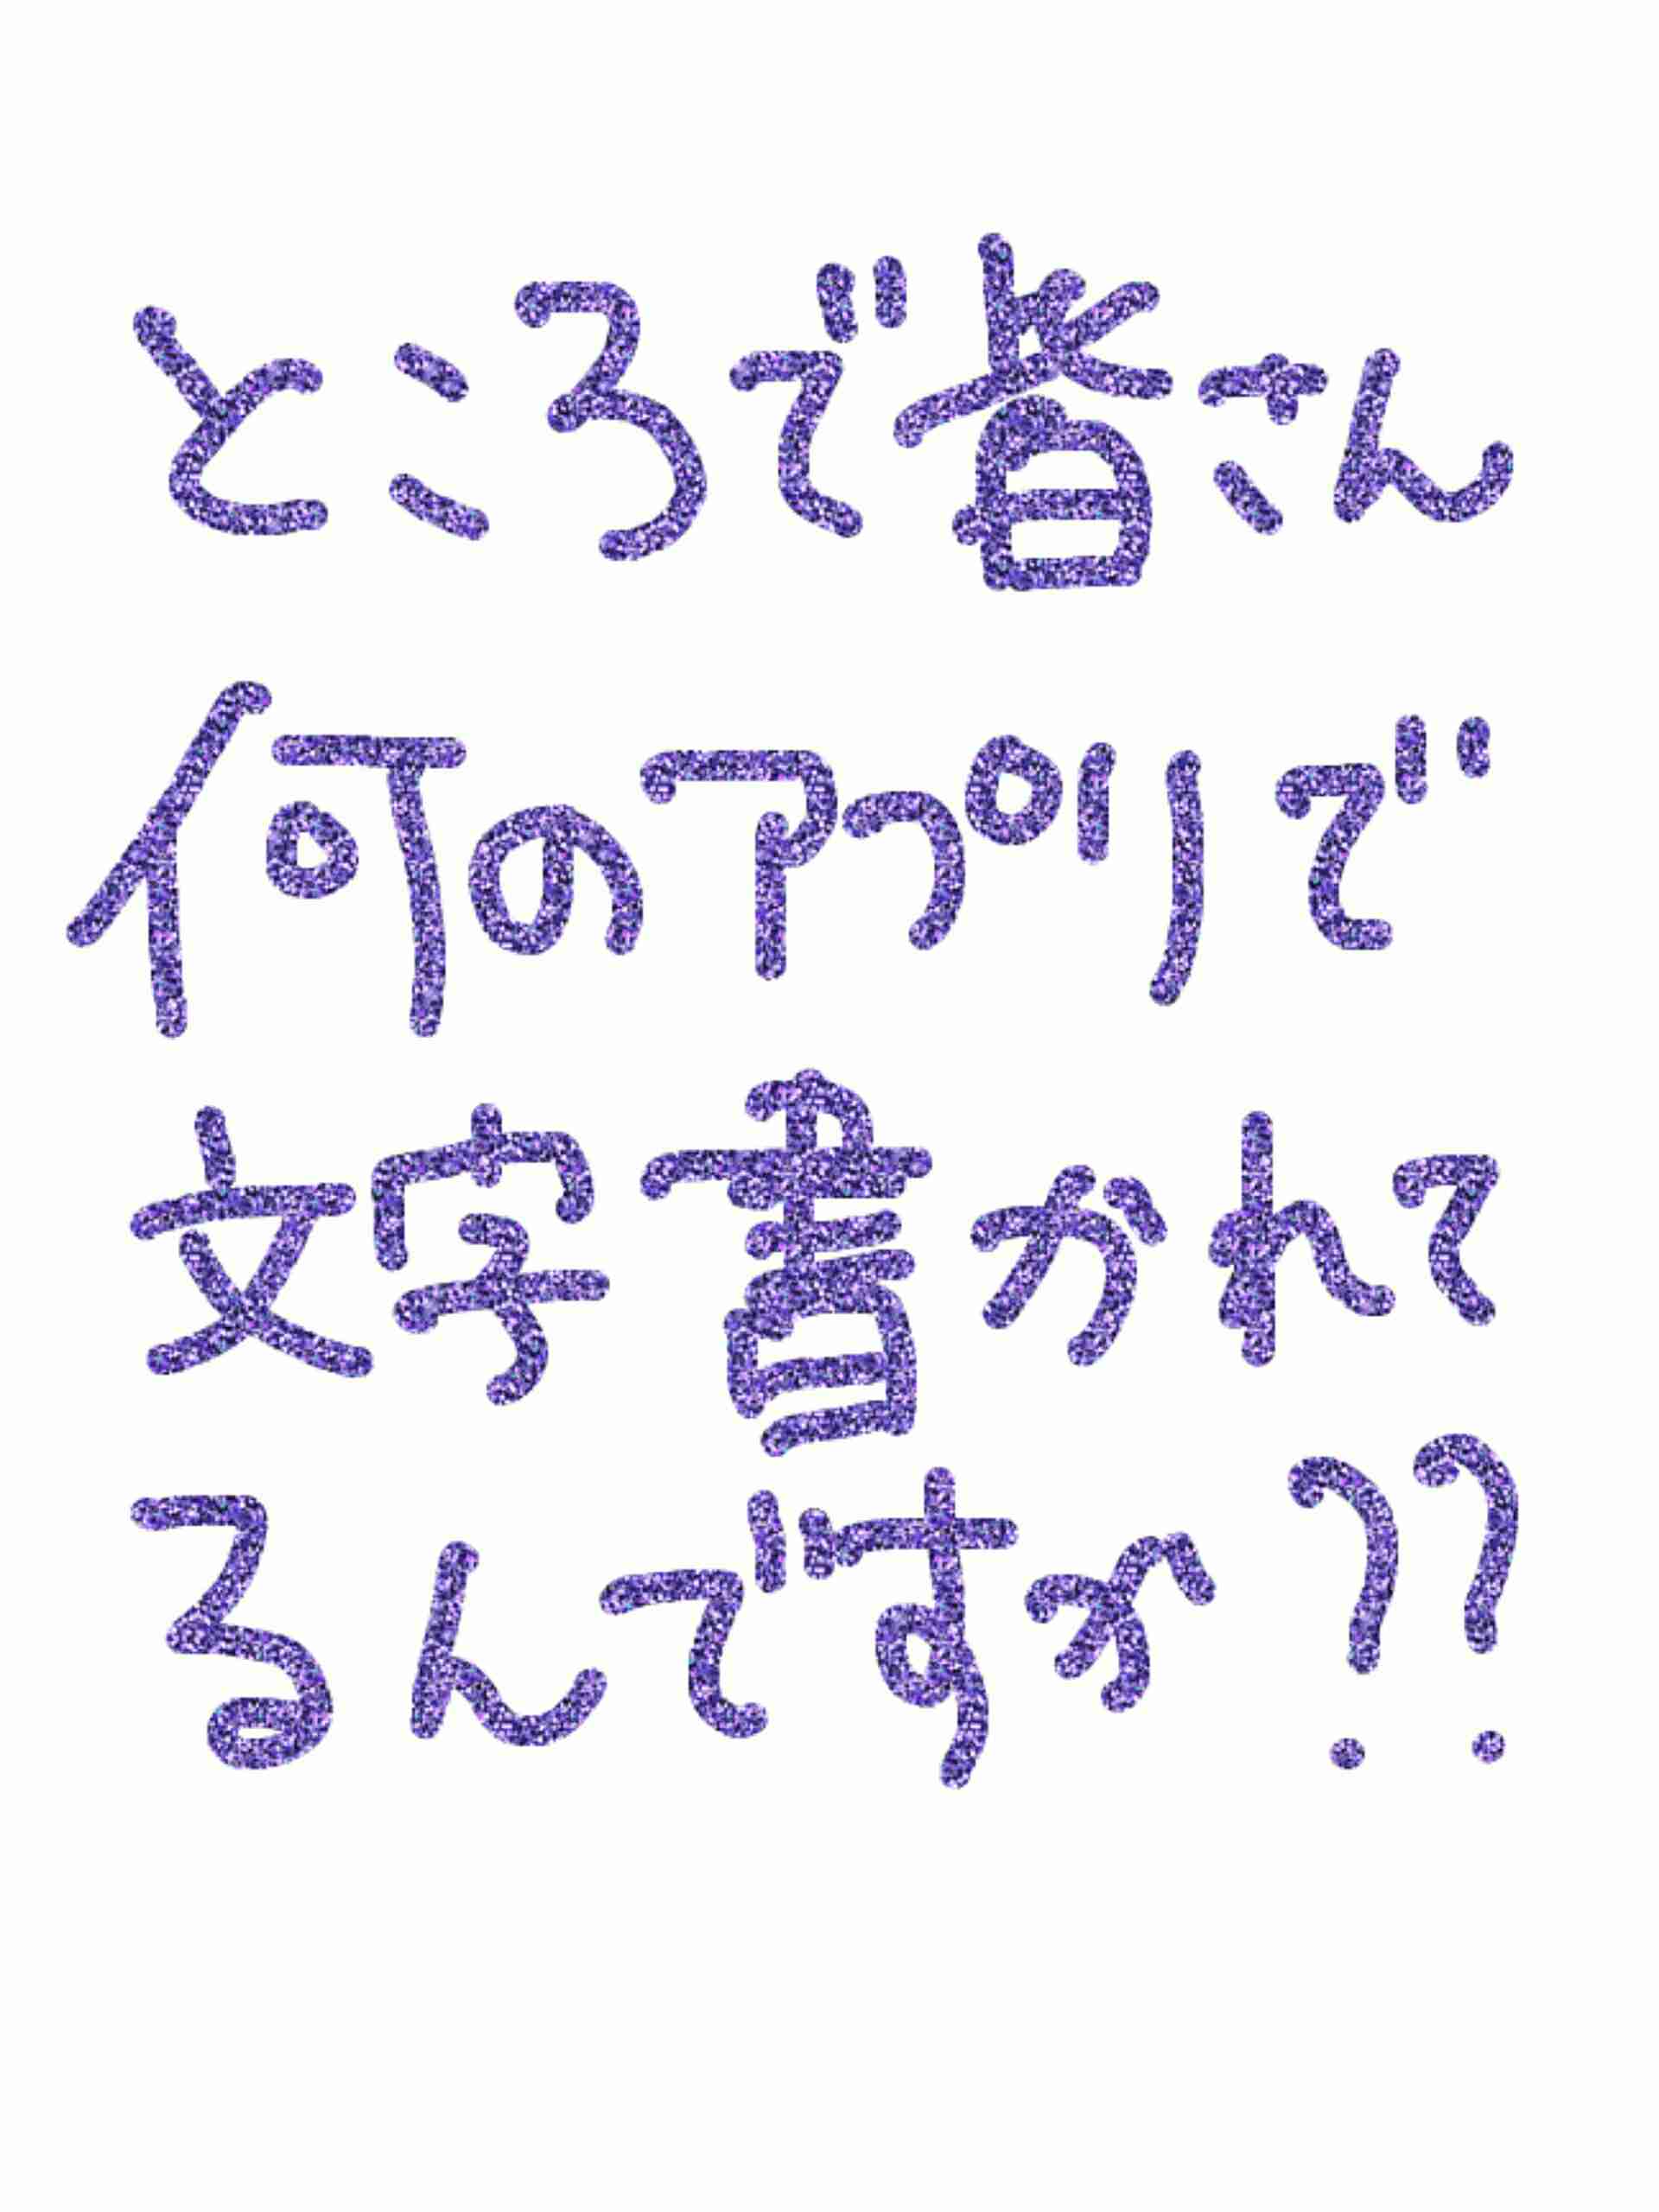 ところで皆さん
何のアプリで
文字書かれて
るんですか??